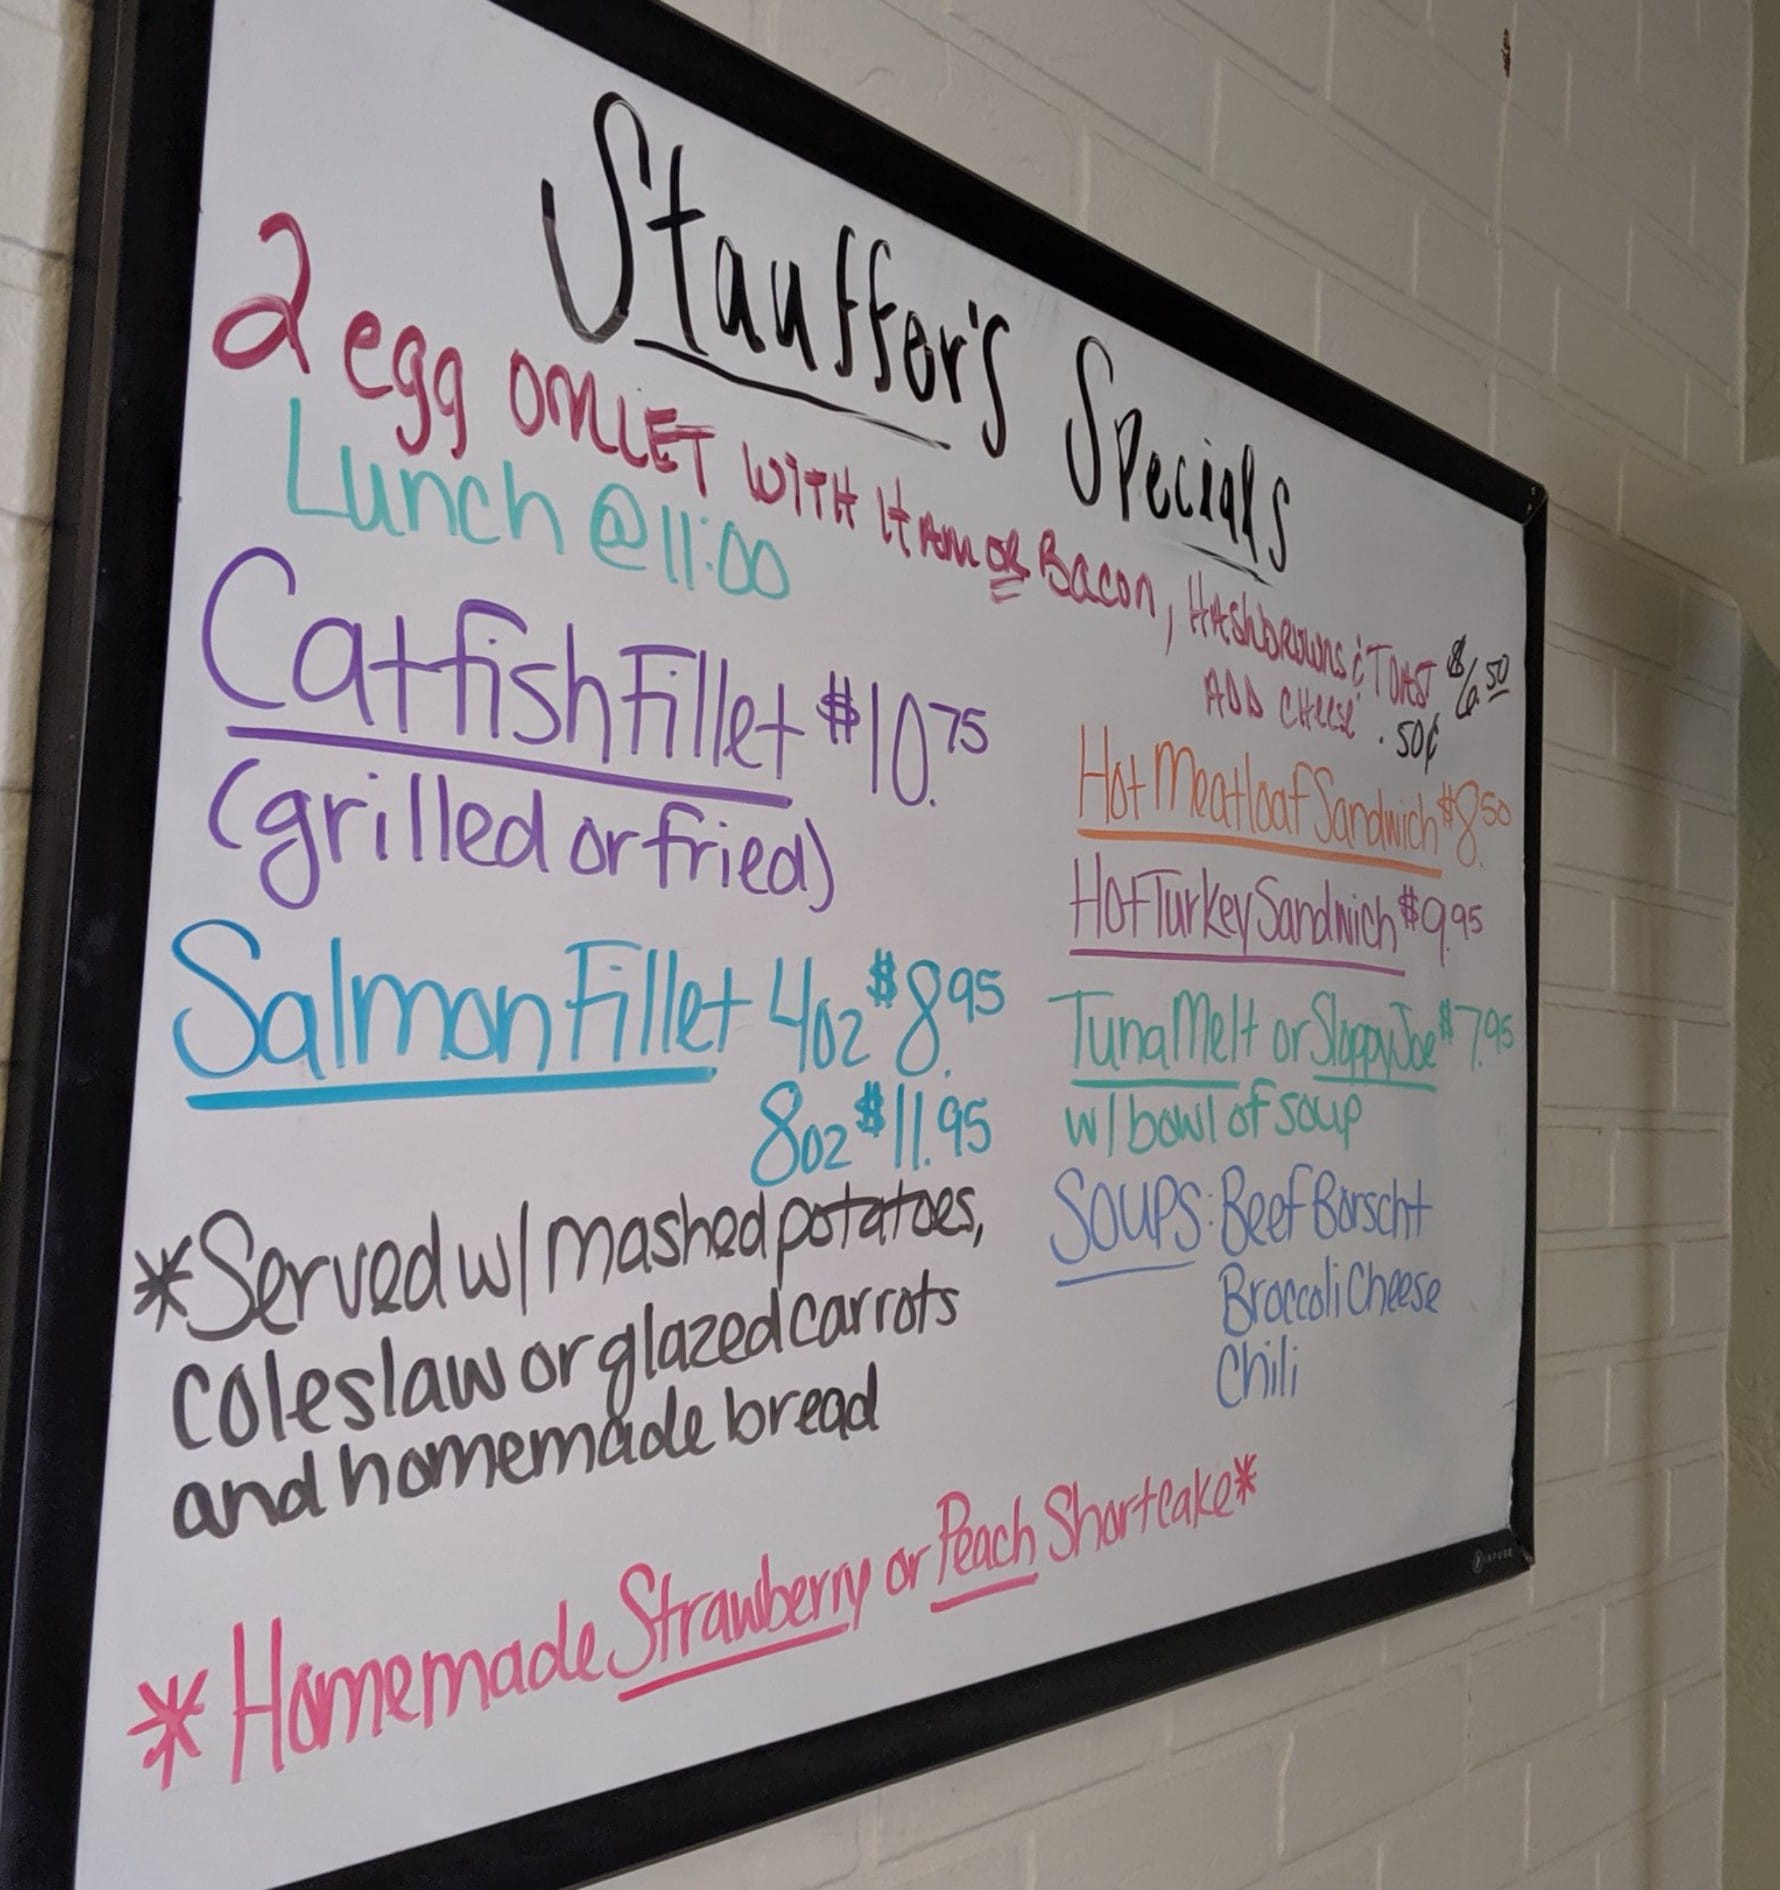 Stauffer's Specials
2 egg OMLLET WITH HAM OR Bacon, HAShbROWNS & TOAST $6.50
ADD CHeese .50¢
Lunch @ 11:00
Catfish Fillet $10.75
(grilled or fried)
Salmon Fillet 4oz $8.95
8oz $11.95
*Served w/ mashed potatoes,
coleslaw or glazed carrots
and homemade bread
Hot Meatloaf Sandwich $8.50
Hot Turkey Sandwich $9.95
Tuna Melt or Sloppy Joe $7.95
w/ bowl of soup
SOUPS: Beef Borscht
Broccoli Cheese
Chili
*Homemade Strawberry or Peach Shortcake*